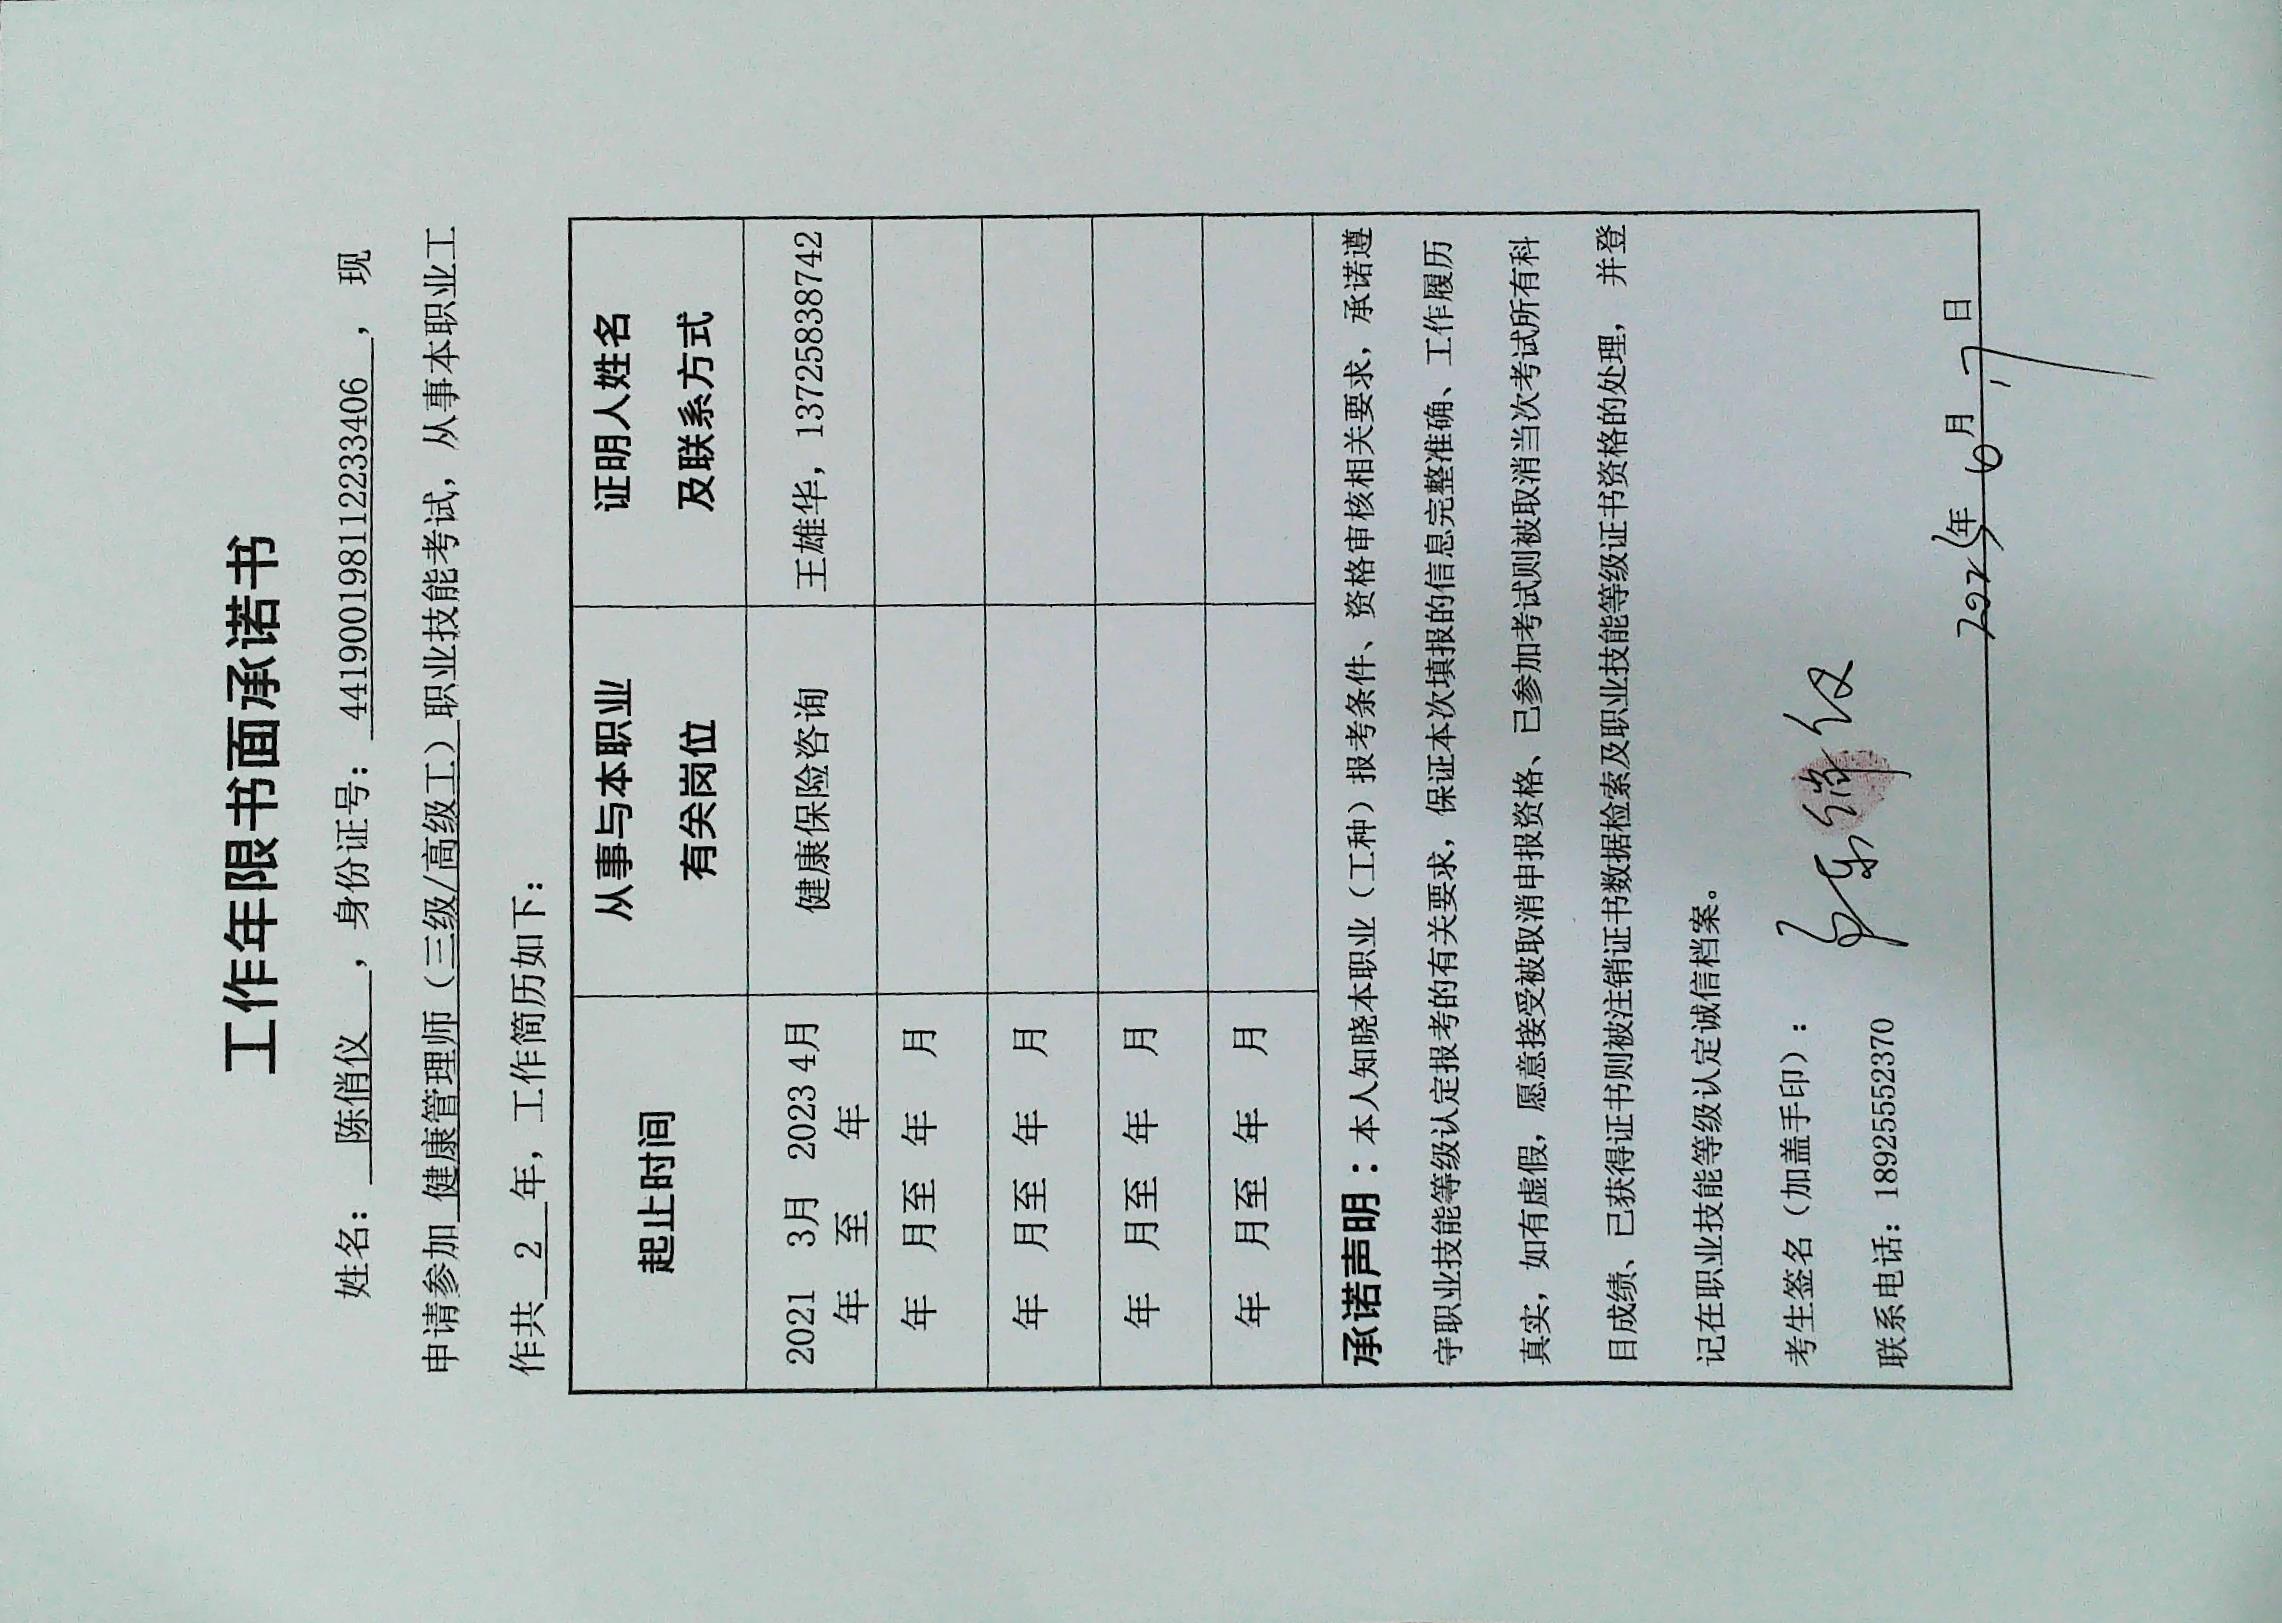 工作年限书面承诺书
姓名： 陈俏仪 ，身份证号： 441900198112233406 ， 现
申请参加 健康管理师（三级/高级工）职业技能考试，从事本职业工
作共 2 年，工作简历如下：
起止时间 从事与本职业有关岗位 证明人姓名及联系方式
2021年 3月至 2023年 4月 健康保险咨询 王雄华，13725838742
年 月至 年 月
年 月至 年 月
年 月至 年 月
年 月至 年 月
承诺声明：本人知晓本职业（工种）报考条件、资格审核相关要求，承诺遵
守职业技能等级认定报考的有关要求，保证本次填报的信息完整准确、工作履历
真实，如有虚假，愿意接受被取消申报资格、已参加考试则被取消当次考试所有科
目成绩、已获得证书则被注销证书数据检索及职业技能等级证书资格的处理， 并登
记在职业技能等级认定诚信档案。
考生签名（加盖手印）： 陈俏仪
联系电话：18925552370
年 6月 17日